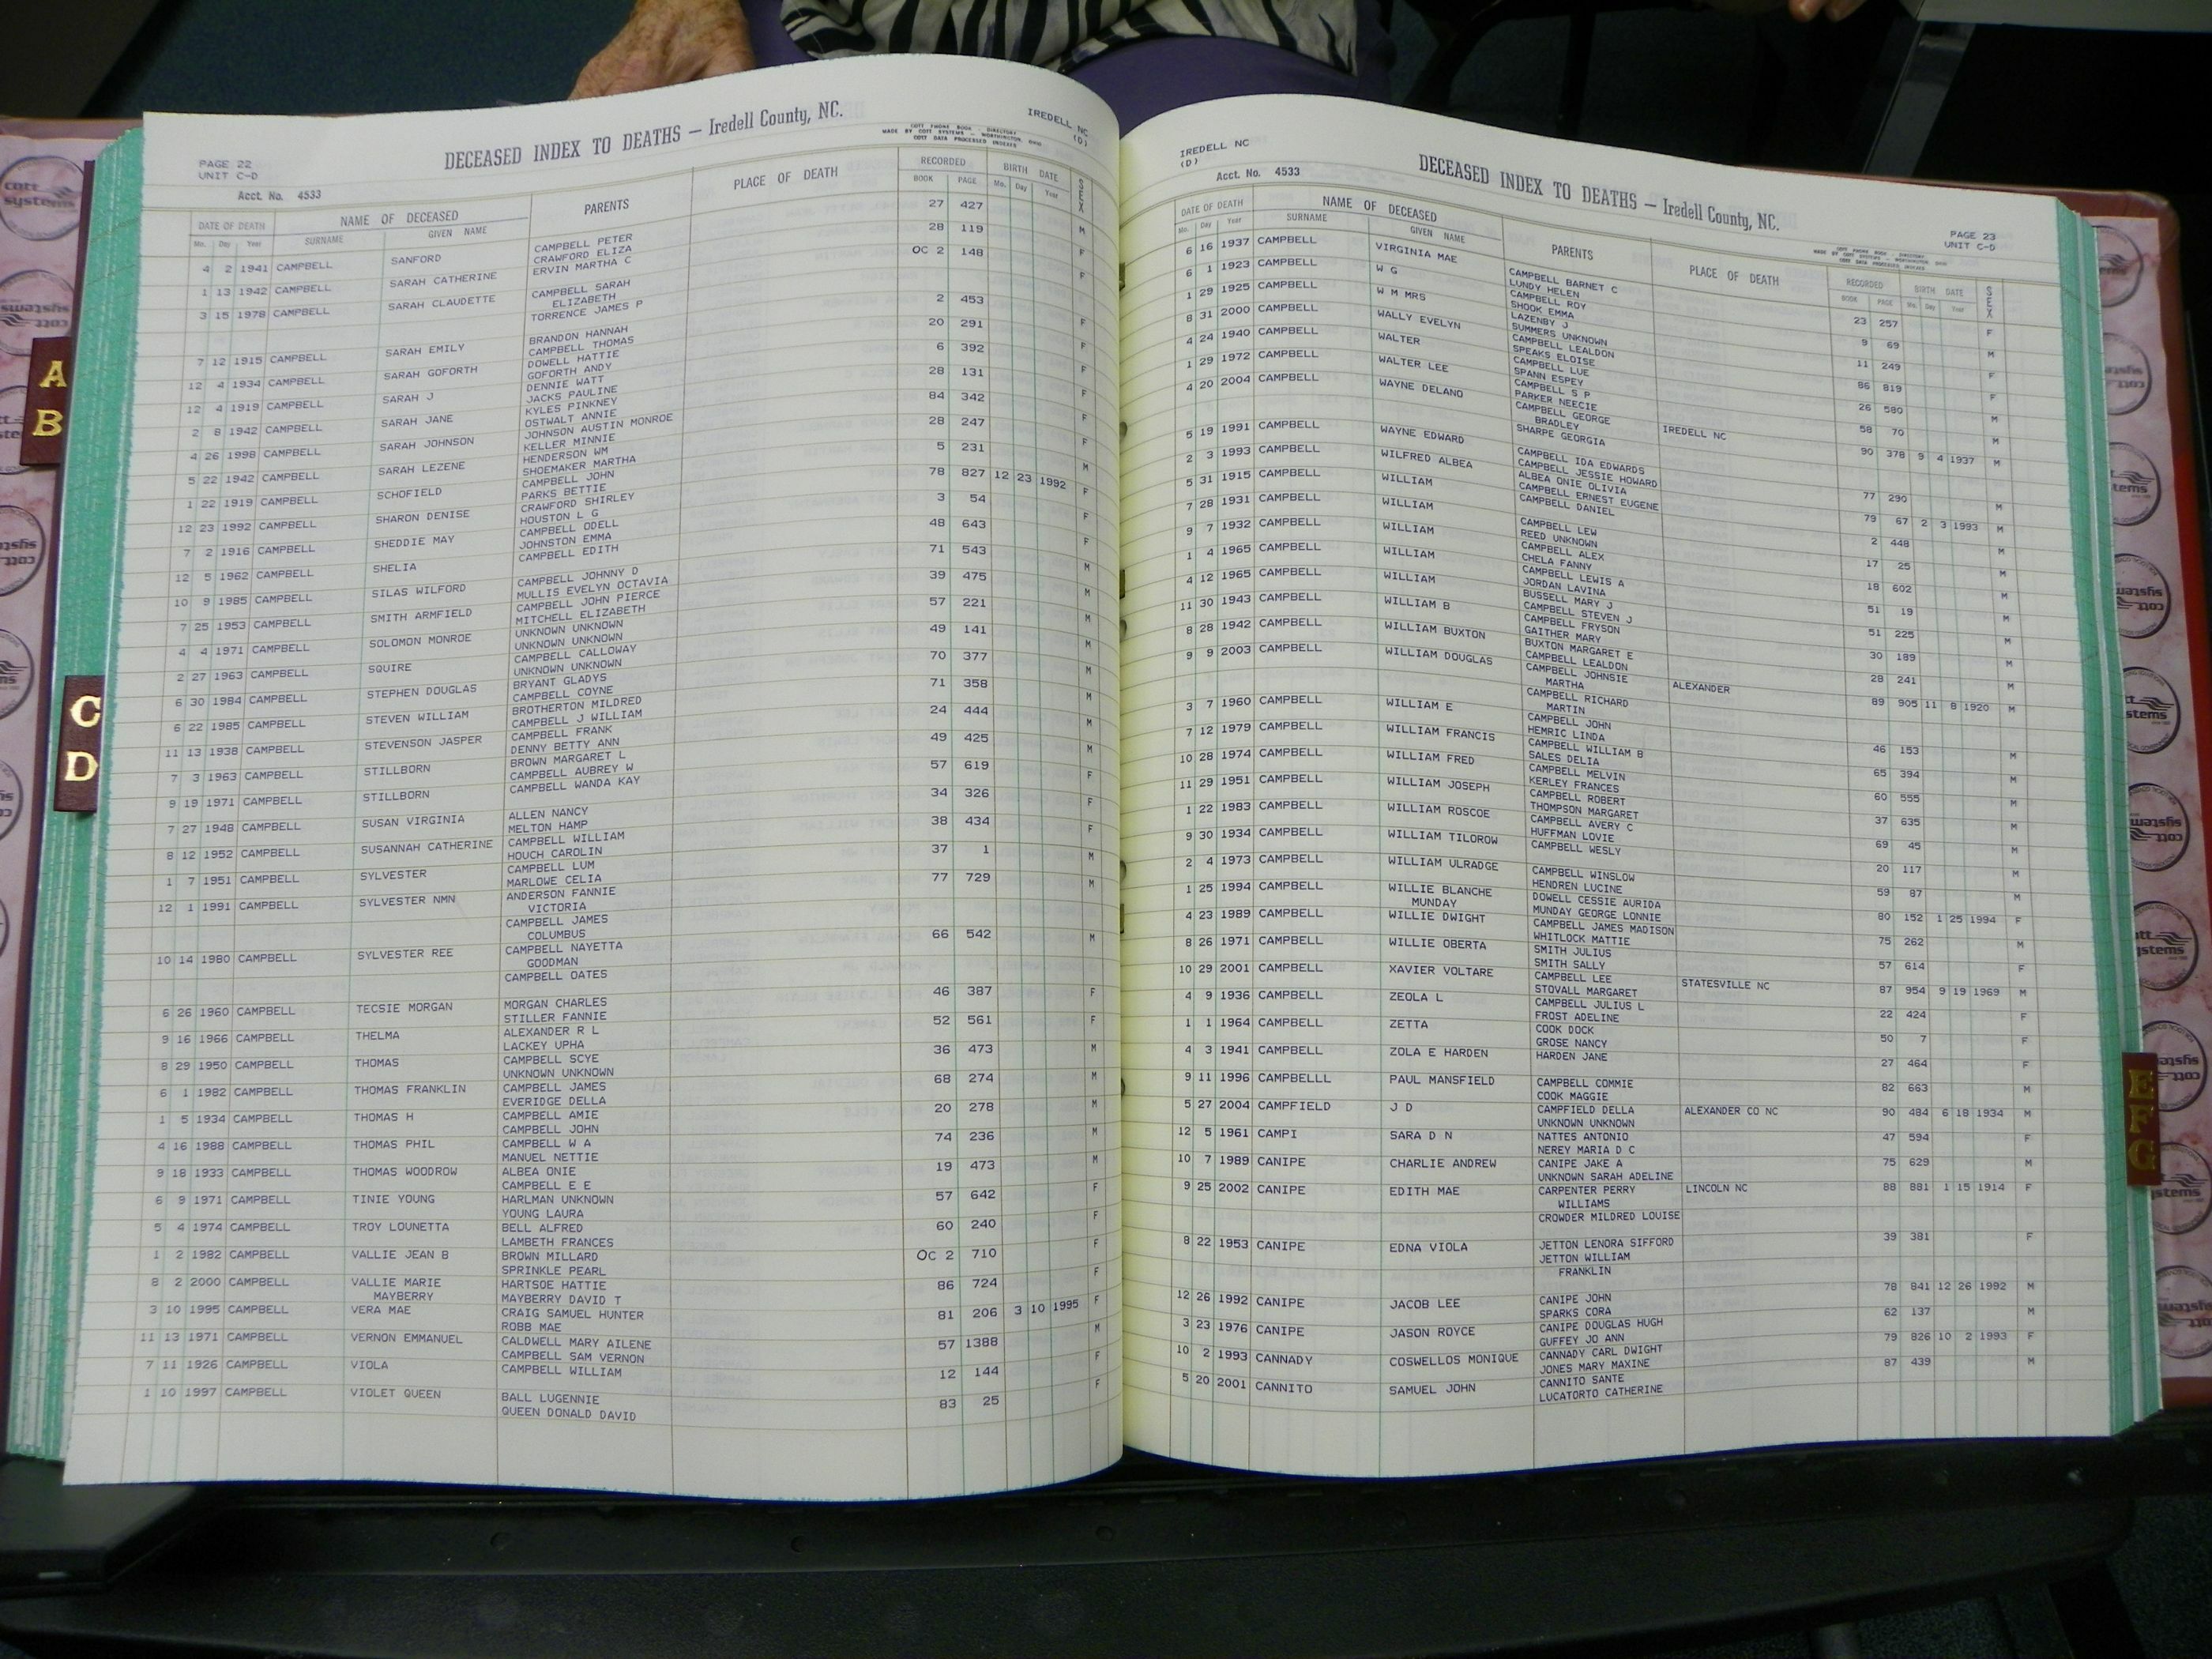 PAGE 22
UNIT C-D
DECEASED INDEX TO DEATHS — Iredell County, NC.
IREDELL NC
(D)
MADE BY COTT SYSTEMS - WORTHINGTON, OHIO
COTT DATA PROCESSED INDEXES
Acct. No. 4533
DATE OF DEATH NAME OF DECEASED PARENTS PLACE OF DEATH RECORDED BIRTH DATE SEX
Mo. Day Year SURNAME GIVEN NAME BOOK PAGE Mo. Day Year
4 2 1941 CAMPBELL SANFORD CAMPBELL PETER 27 427 M
CRAWFORD ELIZA
1 13 1942 CAMPBELL SARAH CATHERINE ERVIN MARTHA C 28 119 F
3 15 1978 CAMPBELL SARAH CLAUDETTE CAMPBELL SARAH OC 2 148 F
ELIZABETH
TORRENCE JAMES P
7 12 1915 CAMPBELL SARAH EMILY BRANDON HANNAH 2 453 F
CAMPBELL THOMAS
12 4 1934 CAMPBELL SARAH GOFORTH DOWELL HATTIE 20 291 F
GOFORTH ANDY
12 4 1919 CAMPBELL SARAH J DENNIE WATT 6 392 F
JACKS PAULINE
2 8 1942 CAMPBELL SARAH JANE KYLES PINKNEY 28 131 F
OSTWALT ANNIE
4 26 1998 CAMPBELL SARAH JOHNSON JOHNSON AUSTIN MONROE 84 342 F
KELLER MINNIE
5 22 1942 CAMPBELL SARAH LEZENE HENDERSON WM 28 247 F
SHOEMAKER MARTHA
1 22 1919 CAMPBELL SCHOFIELD CAMPBELL JOHN 5 231 M
PARKS BETTIE
12 23 1992 CAMPBELL SHARON DENISE CRAWFORD SHIRLEY 78 827 12 23 1992 F
HOUSTON L G
7 2 1916 CAMPBELL SHEDDIE MAY CAMPBELL ODELL 3 54 F
JOHNSTON EMMA
12 5 1962 CAMPBELL SHELIA CAMPBELL EDITH 48 643 F
10 9 1985 CAMPBELL SILAS WILFORD CAMPBELL JOHNNY D 71 543 M
MULLIS EVELYN OCTAVIA
7 25 1953 CAMPBELL SMITH ARMFIELD CAMPBELL JOHN PIERCE 39 475 M
MITCHELL ELIZABETH
4 4 1971 CAMPBELL SOLOMON MONROE UNKNOWN UNKNOWN 57 221 M
UNKNOWN UNKNOWN
2 27 1963 CAMPBELL SQUIRE CAMPBELL CALLOWAY 49 141 M
UNKNOWN UNKNOWN
6 30 1984 CAMPBELL STEPHEN DOUGLAS BRYANT GLADYS 70 377 M
CAMPBELL COYNE
6 22 1985 CAMPBELL STEVEN WILLIAM BROTHERTON MILDRED 71 358 M
CAMPBELL J WILLIAM
11 13 1938 CAMPBELL STEVENSON JASPER CAMPBELL FRANK 24 444 M
DENNY BETTY ANN
7 3 1963 CAMPBELL STILLBORN BROWN MARGARET L 49 425 M
CAMPBELL AUBREY W
9 19 1971 CAMPBELL STILLBORN CAMPBELL WANDA KAY 57 619 F
7 27 1948 CAMPBELL SUSAN VIRGINIA ALLEN NANCY 34 326 F
MELTON HAMP
8 12 1952 CAMPBELL SUSANNAH CATHERINE CAMPBELL WILLIAM 38 434 F
HOUCH CAROLIN
1 7 1951 CAMPBELL SYLVESTER CAMPBELL LUM 37 1 M
MARLOWE CELIA
12 1 1991 CAMPBELL SYLVESTER NMN ANDERSON FANNIE 77 729 M
VICTORIA
CAMPBELL JAMES
COLUMBUS
10 14 1980 CAMPBELL SYLVESTER REE CAMPBELL NAYETTA 66 542 M
GOODMAN
CAMPBELL OATES
6 26 1960 CAMPBELL TECSIE MORGAN MORGAN CHARLES 46 387 F
STILLER FANNIE
9 16 1966 CAMPBELL THELMA ALEXANDER R L 52 561 F
LACKEY UPHA
8 29 1950 CAMPBELL THOMAS CAMPBELL SCYE 36 473 M
UNKNOWN UNKNOWN
6 1 1982 CAMPBELL THOMAS FRANKLIN CAMPBELL JAMES 68 274 M
EVERIDGE DELLA
1 5 1934 CAMPBELL THOMAS H CAMPBELL AMIE 20 278 M
CAMPBELL JOHN
4 16 1988 CAMPBELL THOMAS PHIL CAMPBELL W A 74 236 M
MANUEL NETTIE
9 18 1933 CAMPBELL THOMAS WOODROW ALBEA ONIE 19 473 M
CAMPBELL E E
6 9 1971 CAMPBELL TINIE YOUNG HARLMAN UNKNOWN 57 642 F
YOUNG LAURA
5 4 1974 CAMPBELL TROY LOUNETTA BELL ALFRED 60 240 F
LAMBETH FRANCES
1 2 1982 CAMPBELL VALLIE JEAN B BROWN MILLARD OC 2 710 F
SPRINKLE PEARL
8 2 2000 CAMPBELL VALLIE MARIE HARTSOE HATTIE 86 724 F
MAYBERRY MAYBERRY DAVID T
3 10 1995 CAMPBELL VERA MAE CRAIG SAMUEL HUNTER 81 206 3 10 1995 F
ROBB MAE
11 13 1971 CAMPBELL VERNON EMMANUEL CALDWELL MARY AILENE 57 1388 M
CAMPBELL SAM VERNON
7 11 1926 CAMPBELL VIOLA CAMPBELL WILLIAM 12 144 F
1 10 1997 CAMPBELL VIOLET QUEEN BALL LUGENNIE 83 25 F
QUEEN DONALD DAVID
IREDELL NC
(D)
Acct. No. 4533
DECEASED INDEX TO DEATHS — Iredell County, NC.
PAGE 23
UNIT C-D
DATE OF DEATH NAME OF DECEASED PARENTS PLACE OF DEATH RECORDED BIRTH DATE SEX
Mo. Day Year SURNAME GIVEN NAME BOOK PAGE Mo. Day Year
6 16 1937 CAMPBELL VIRGINIA MAE CAMPBELL BARNET C 23 257 F
LUNDY HELEN
6 1 1923 CAMPBELL W G CAMPBELL ROY 9 69 M
SHOOK EMMA
1 29 1925 CAMPBELL W M MRS LAZENBY J 11 249 F
SUMMERS UNKNOWN
8 31 2000 CAMPBELL WALLY EVELYN CAMPBELL LEALDON 86 819 F
SPEAKS ELOISE
4 24 1940 CAMPBELL WALTER CAMPBELL LUE 26 580 M
SPANN ESPEY
1 29 1972 CAMPBELL WALTER LEE CAMPBELL S P 58 70 M
PARKER NEECIE
4 20 2004 CAMPBELL WAYNE DELANO CAMPBELL GEORGE IREDELL NC 90 378 9 4 1937 M
BRADLEY
SHARPE GEORGIA
5 19 1991 CAMPBELL WAYNE EDWARD CAMPBELL IDA EDWARDS 77 290 M
CAMPBELL JESSIE HOWARD
2 3 1993 CAMPBELL WILFRED ALBEA ALBEA ONIE OLIVIA 79 67 2 3 1993 M
CAMPBELL ERNEST EUGENE
5 31 1915 CAMPBELL WILLIAM CAMPBELL DANIEL 2 448 M
7 28 1931 CAMPBELL WILLIAM CAMPBELL LEW 17 25 M
REED UNKNOWN
9 7 1932 CAMPBELL WILLIAM CAMPBELL ALEX 18 602 M
CHELA FANNY
1 4 1965 CAMPBELL WILLIAM CAMPBELL LEWIS A 51 19 M
JORDAN LAVINA
4 12 1965 CAMPBELL WILLIAM BUSSELL MARY J 51 225 M
CAMPBELL STEVEN J
11 30 1943 CAMPBELL WILLIAM B CAMPBELL FRYSON 30 189 M
GAITHER MARY
8 28 1942 CAMPBELL WILLIAM BUXTON BUXTON MARGARET E 28 241 M
CAMPBELL LEALDON
9 9 2003 CAMPBELL WILLIAM DOUGLAS CAMPBELL JOHNSIE ALEXANDER 89 905 11 8 1920 M
MARTHA
CAMPBELL RICHARD
MARTIN
3 7 1960 CAMPBELL WILLIAM E CAMPBELL JOHN 46 153 M
HEMRIC LINDA
7 12 1979 CAMPBELL WILLIAM FRANCIS CAMPBELL WILLIAM B 65 394 M
SALES DELIA
10 28 1974 CAMPBELL WILLIAM FRED CAMPBELL MELVIN 60 555 M
KERLEY FRANCES
11 29 1951 CAMPBELL WILLIAM JOSEPH CAMPBELL ROBERT 37 635 M
THOMPSON MARGARET
1 22 1983 CAMPBELL WILLIAM ROSCOE CAMPBELL AVERY C 69 45 M
HUFFMAN LOVIE
9 30 1934 CAMPBELL WILLIAM TILOROW CAMPBELL WESLY 20 117 M
2 4 1973 CAMPBELL WILLIAM ULRADGE CAMPBELL WINSLOW 59 87 M
HENDREN LUCINE
1 25 1994 CAMPBELL WILLIE BLANCHE DOWELL CESSIE AURIDA 80 152 1 25 1994 F
MUNDAY MUNDAY GEORGE LONNIE
4 23 1989 CAMPBELL WILLIE DWIGHT CAMPBELL JAMES MADISON 75 262 M
WHITLOCK MATTIE
8 26 1971 CAMPBELL WILLIE OBERTA SMITH JULIUS 57 614 F
SMITH SALLY
10 29 2001 CAMPBELL XAVIER VOLTARE CAMPBELL LEE STATESVILLE NC 87 954 9 19 1969 M
STOVALL MARGARET
4 9 1936 CAMPBELL ZEOLA L CAMPBELL JULIUS L 22 424 F
FROST ADELINE
1 1 1964 CAMPBELL ZETTA COOK DOCK 50 7 F
GROSE NANCY
4 3 1941 CAMPBELL ZOLA E HARDEN HARDEN JANE 27 464 F
9 11 1996 CAMPBELLL PAUL MANSFIELD CAMPBELL COMMIE 82 663 M
COOK MAGGIE
5 27 2004 CAMPFIELD J D CAMPFIELD DELLA ALEXANDER CO NC 90 484 6 18 1934 M
UNKNOWN UNKNOWN
12 5 1961 CAMPI SARA D N NATTES ANTONIO 47 594 F
NEREY MARIA D C
10 7 1989 CANIPE CHARLIE ANDREW CANIPE JAKE A 75 629 M
UNKNOWN SARAH ADELINE
9 25 2002 CANIPE EDITH MAE CARPENTER PERRY LINCOLN NC 88 881 1 15 1914 F
WILLIAMS
CROWDER MILDRED LOUISE
8 22 1953 CANIPE EDNA VIOLA JETTON LENORA SIFFORD 39 381 F
JETTON WILLIAM
FRANKLIN
12 26 1992 CANIPE JACOB LEE CANIPE JOHN 78 841 12 26 1992 M
SPARKS CORA
3 23 1976 CANIPE JASON ROYCE CANIPE DOUGLAS HUGH 62 137 M
GUFFEY JO ANN
10 2 1993 CANNADY COSWELLOS MONIQUE CANNADY CARL DWIGHT 79 826 10 2 1993 F
JONES MARY MAXINE
5 20 2001 CANNITO SAMUEL JOHN CANNITO SANTE 87 439 M
LUCATORTO CATHERINE
A
B
C
D
E
F
G
cott
systems